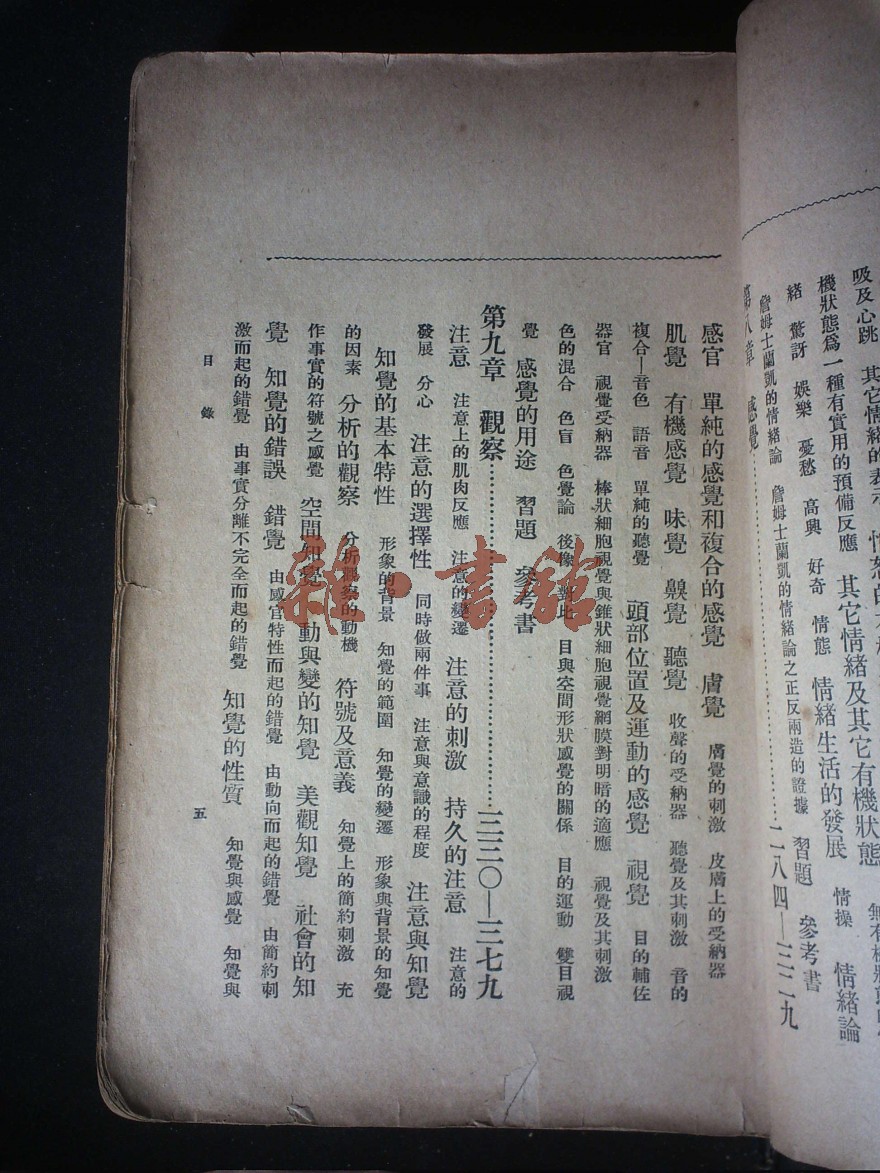 吸及心跳 其它情緒的表示
機狀態爲一種有實用的預備反應 其它情緒及其它有機狀態
緒 驚訝 娛樂 憂愁 高興 好奇 情態 情緒生活的發展 情操 情緒論
詹姆士蘭凱的情緒論 詹姆士蘭凱的情緒論之正反兩造的證據 習題 參考書
第八章 感覺……………二八四—三二九
感官 單純的感覺和複合的感覺 膚覺 膚覺的刺激 皮膚上的受納器
肌覺 有機感覺 味覺 齅覺 聽覺 收聲的受納器 聽覺及其刺激 音的
複合—音色 語音 單純的聽覺 頭部位置及運動的感覺 視覺 目的輔佐
器官 視覺受納器 棒狀細胞視覺與錐狀細胞視覺網膜對明暗的適應 視覺及其刺激
色的混合 色盲 色覺論 後像 對比 目與空間形狀感覺的關係 目的運動 雙目視
覺 感覺的用途 習題 參考書
第九章 觀察……………三三〇—三七九
注意 注意上的肌肉反應 注意的變遷 注意的刺激 持久的注意 注意的
發展 分心 注意的選擇性 同時做兩件事 注意與意識的程度 注意與知覺
知覺的基本特性 形象的背景 知覺的範圍 知覺的變遷 形象與背景的知覺
的因素 分析的觀察 分析觀察的動機 符號及意義 知覺上的簡約刺激 充
作事實的符號之感覺 空間知覺 動與變的知覺 美觀知覺 社會的知
覺 知覺的錯誤 錯覺 由感官特性而起的錯覺 由動向而起的錯覺 由簡約刺
激而起的錯覺 由事實分離不完全而起的錯覺 知覺的性質 知覺與感覺 知覺與
目錄
五
雜·書館